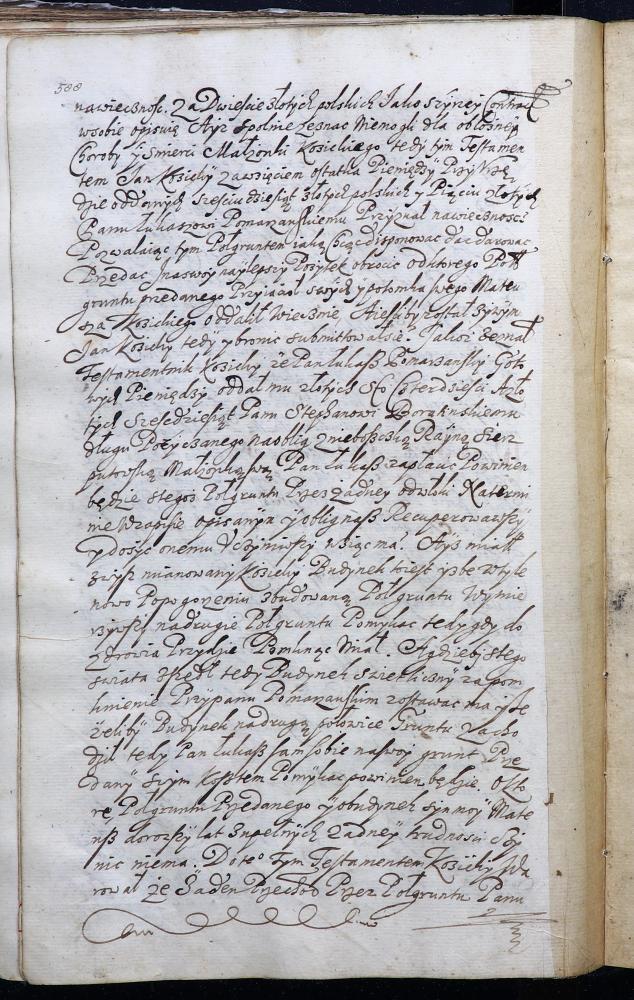 588
na wiecznosc. Za Dwiescie złotych polskich Jako szyrzey Contract
w sobie opisuie Ayz spolnie zeznac Niemogli dla obłozney
Choroby y Smierci Małzonki Kosickiego tedy tym Testamen
tem Jan Kosicky zawzięciem ostatka Pieniędzy Przy
dzie oddanych Szesciudziesiąt złotych polskich y Pięciu złotych
Panu Łukaszowi Pomarzanskiemu Przyznał na wiecznosc
Pozwalaiąc tym Połgruntem iako chcąc disponowac dac darowac
Przedac na swoy naylepszy Pozytek obrocic od ktorego Poł
gruntu przedanego Przyiacioł swych y potomka swego Mateu
sza Kosickiego oddalił wiecznie
Jan Kosicky tedy y bronic submitował się. Takoz zeznał
Testamentnik Kosicky ze Pan Łukasz Pomarzansky Goto
wych Pieniędzy oddał mu złotych Sto Czterdziesci A zło
tych Szescdziesiąt Panu Stephanowi
długu Pozyczanego na oblig z nieboszczką Rayną
Małzonką swą Pan Łukasz zapłacic Powinien
będzie z tegoz Połgruntu Przez zadney odwłoki
nie w zapisie opisanym y oblig nasz Recuperowawszy
y dosyc onemu Uczyniwszy wziąc ma. Ayz miał
zwysz mianowany Kosicky Budynek
nowo Po pogorzeniu zbudowaną Poł gruntu Wymie
rzywszy na drugie Poł gruntu Pomykac tedy gdy do
zdrowia Przydzie Pomknąc Miał. A gdzieby z tego
swiata zszedł tedy Budynek Swietliczny za pom
knienie Przy panu Pomarzanskim zostawac ma y Je
zeliby Budynek na drugą połowice Gruntu zacho
dził tedy Pan Łukasz sam sobie na swoy grunt Prze
dany swym Kosztem Pomykac powinien będzie. O kto
re Połgruntu Przedanego y o budynek syn moy Mate
usz dorozszy lat zupełnych zadney trudnosci czy
nic niema. Do te° tym Testamentem Kosicky Wa
rował ze zaden Przechod Przez Połgruntu Panu